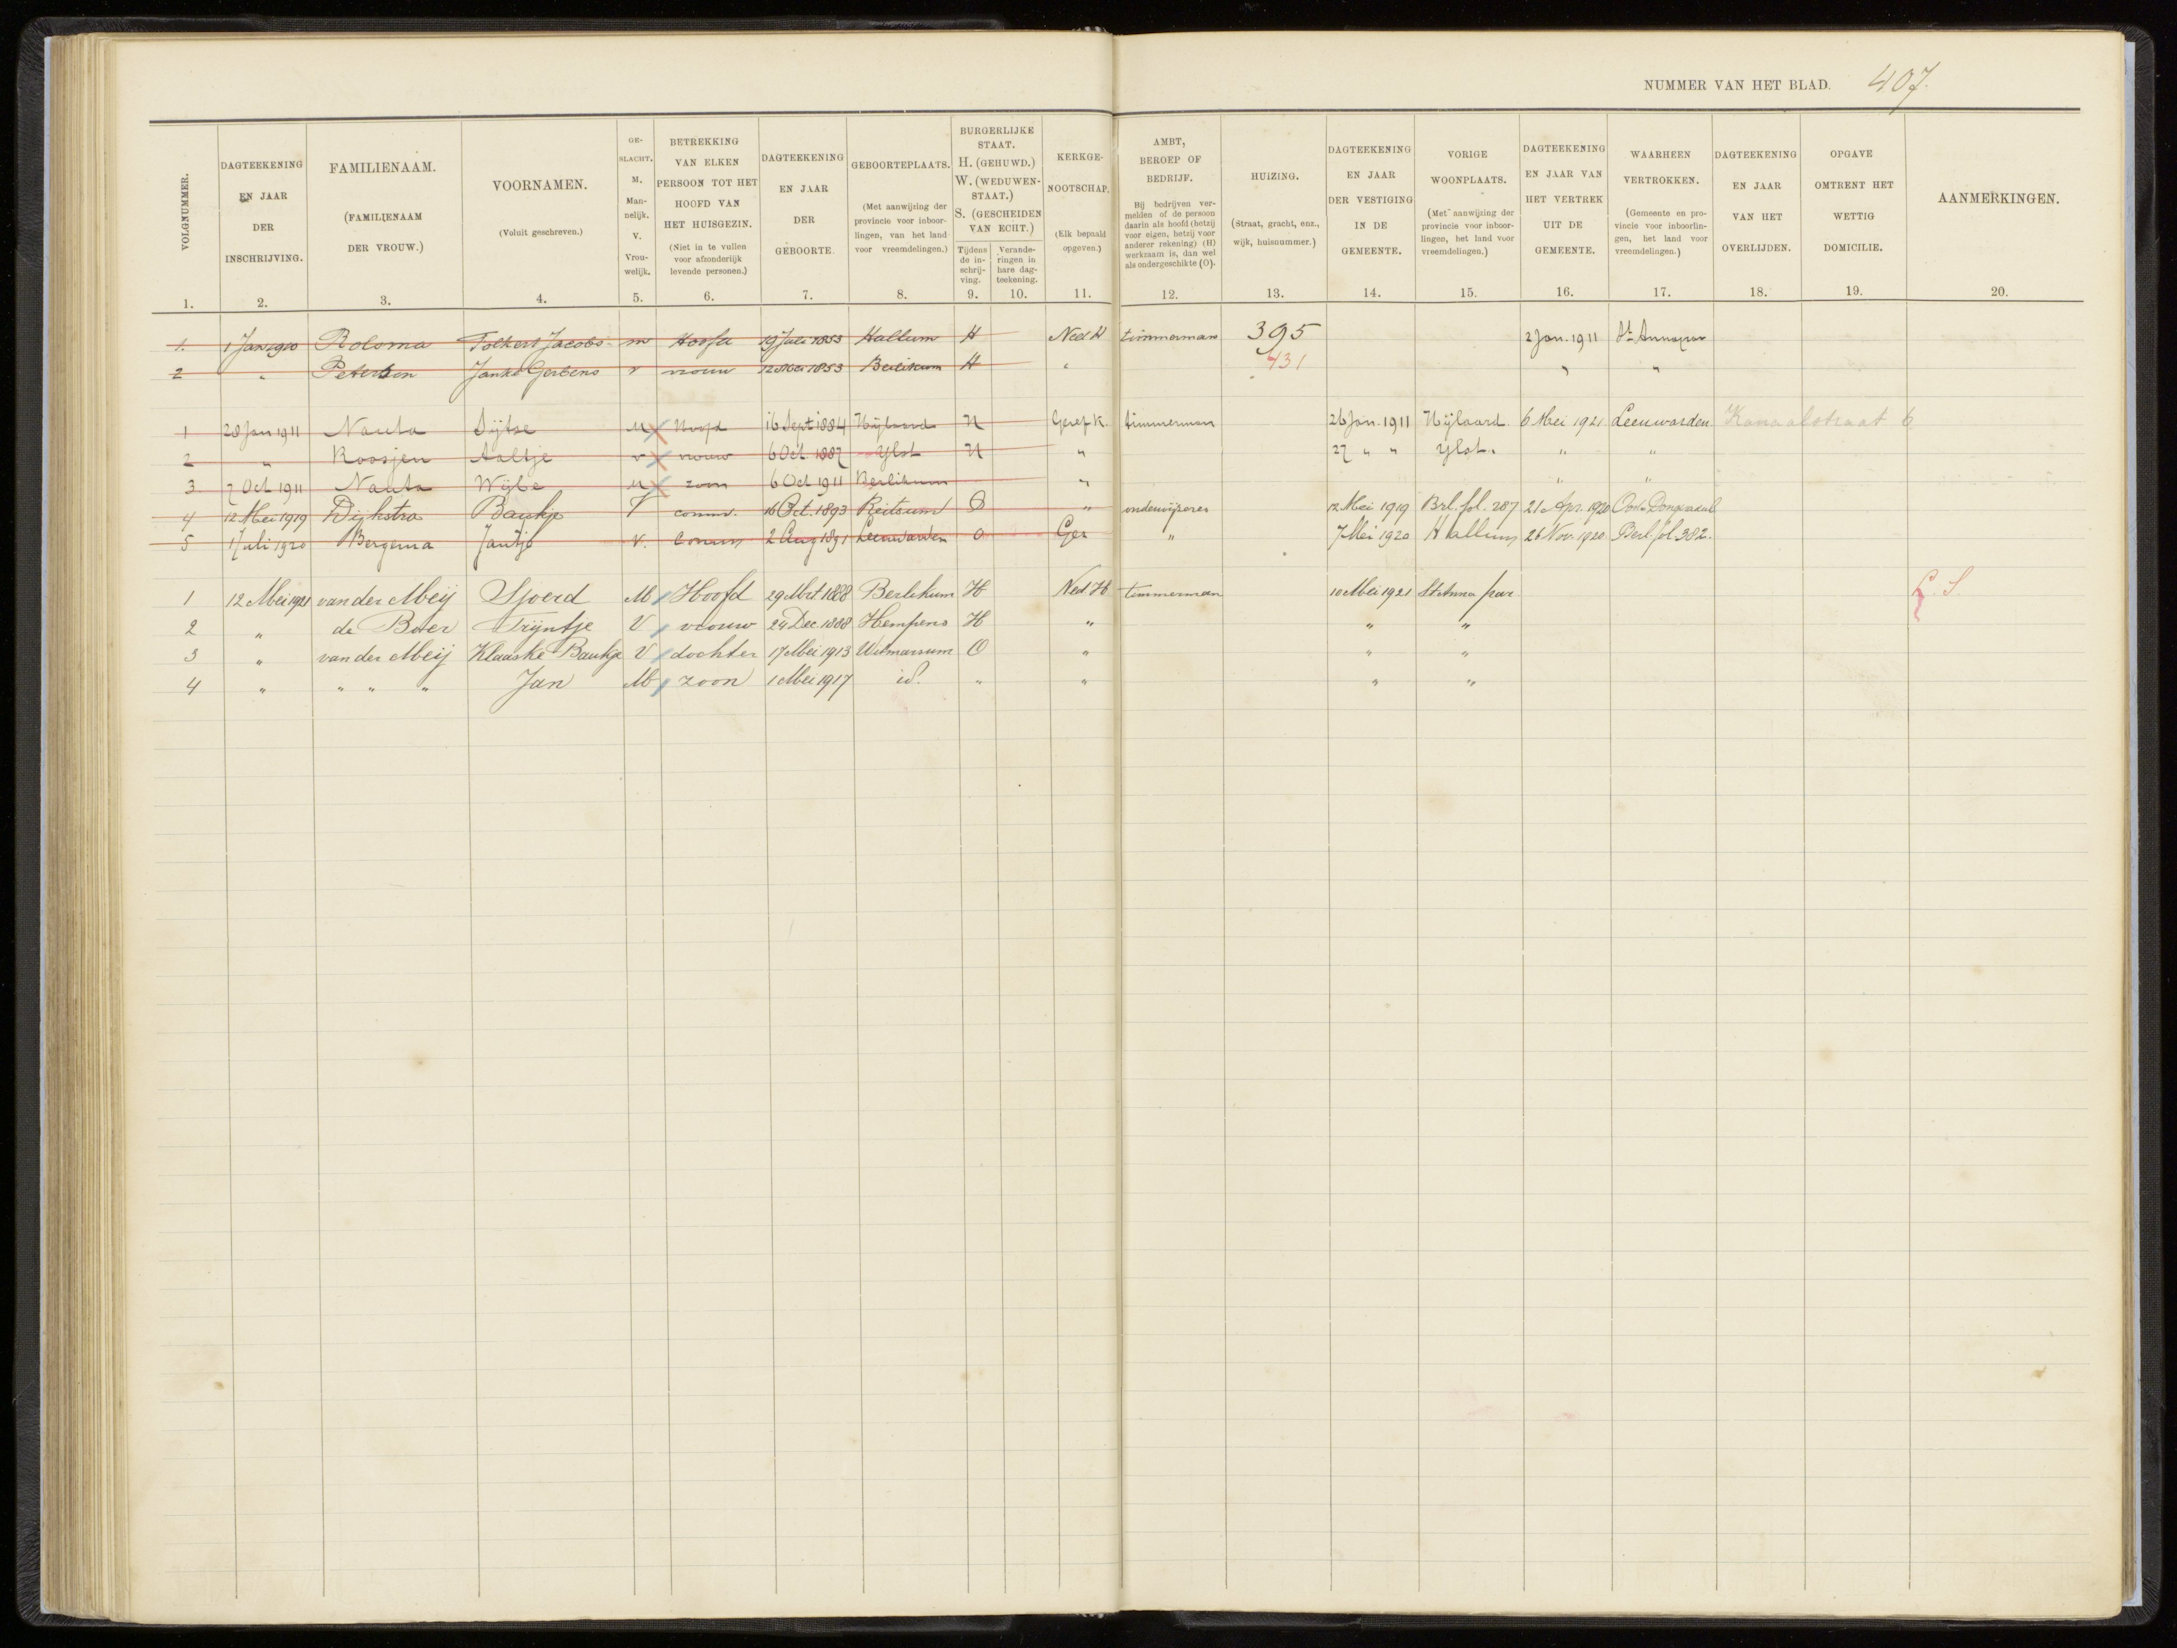 NUMMER VAN HET BLAD. 407.
VOLGNUMMER. 1.
DAGTEEKENING EN JAAR DER INSCHRIJVING. 2.
FAMILIENAAM. (FAMILIENAAM DER VROUW.) 3.
VOORNAMEN. (Voluit geschreven.) 4.
GE-SLACHT. M. Man-nelijk. V. Vrou-welijk. 5.
BETREKKING VAN ELKEN PERSOON TOT HET HOOFD VAN HET HUISGEZIN. (Niet in te vullen voor afzonderlijk levende personen.) 6.
DAGTEEKENING EN JAAR DER GEBOORTE. 7.
GEBOORTEPLAATS. (Met aanwijzing der provincie voor inboor-lingen, van het land voor vreemdelingen.) 8.
BURGERLIJKE STAAT. H. (GEHUWD.) W. (WEDUWEN-STAAT.) S. (GESCHEIDEN VAN ECHT.)
Tijdens de in-schrij-ving. 9.
Verande-ringen in hare dag-teekening. 10.
KERKGE-NOOTSCHAP. (Elk bepaald opgeven.) 11.
AMBT, BEROEP OF BEDRIJF. Bij bedrijven ver-melden of de persoon daarin als hoofd (hetzij voor eigen, hetzij voor anderer rekening) (H) werkzaam is, dan wel als ondergeschikte (O). 12.
HUIZING. (Straat, gracht, enz., wijk, huisnummer.) 13.
DAGTEEKENING EN JAAR DER VESTIGING IN DE GEMEENTE. 14.
VORIGE WOONPLAATS. (Met aanwijzing der provincie voor inboor-lingen, het land voor vreemdelingen.) 15.
DAGTEEKENING EN JAAR VAN HET VERTREK UIT DE GEMEENTE. 16.
WAARHEEN VERTROKKEN. (Gemeente en pro-vincie voor inboorlin-gen, het land voor vreemdelingen.) 17.
DAGTEEKENING EN JAAR VAN HET OVERLIJDEN. 18.
OPGAVE OMTRENT HET WETTIG DOMICILIE. 19.
AANMERKINGEN. 20.
1. 1 Jan 1910 Bolsma Folkert Jacobs m Hoofd 19 Juli 1853 Hallum H Ned H timmerman 395 2 Jan. 1911 St Annapar
2 " Petersen Janke Gerbens v vrouw 12 Mei 1853 Berlikum H " 431 " "
1 28 Jan 1911 Nauta Sijtse M Hoofd 16 Sept 1884 Nijland H Geref K. timmerman 26 Jan. 1911 Nijland. 6 Mei 1921 Leeuwarden Kanaalstraat 6
2 " Roosjen Aaltje v vrouw 6 Oct 1887 Ylst H " 27 " " Ylst. " "
3 7 Oct 1911 Nauta Wijbe M zoon 6 Oct 1911 Berlikum " " "
4 12 Mei 1919 Dijkstra Baukje V comm. 16 Oct. 1893 Reitsum O " onderwijzeres 12 Mei 1919 Brl. fol. 287 21 Apr. 1920 Oost Dongeradeel
5 1 Juli 1920 Bergema Jantje v. comm 2 Aug 1891 Leeuwarden O Ger " 7 Mei 1920 Hallum 26 Nov. 1920 Berl. fol 382.
1 12 Mei 1921 van der Meij Sjoerd M Hoofd 29 Mrt 1888 Berlikum H Ned H timmerman 10 Mei 1921 St Anna par L. S.
2 " de Boer Trijntje V vrouw 24 Dec. 1888 Hempens H " " "
3 " van der Meij Klaaske Baukje V dochter 17 Mei 1913 Witmarsum O " " "
4 " " " " Jan M zoon 1 Mei 1917 id. " " " "